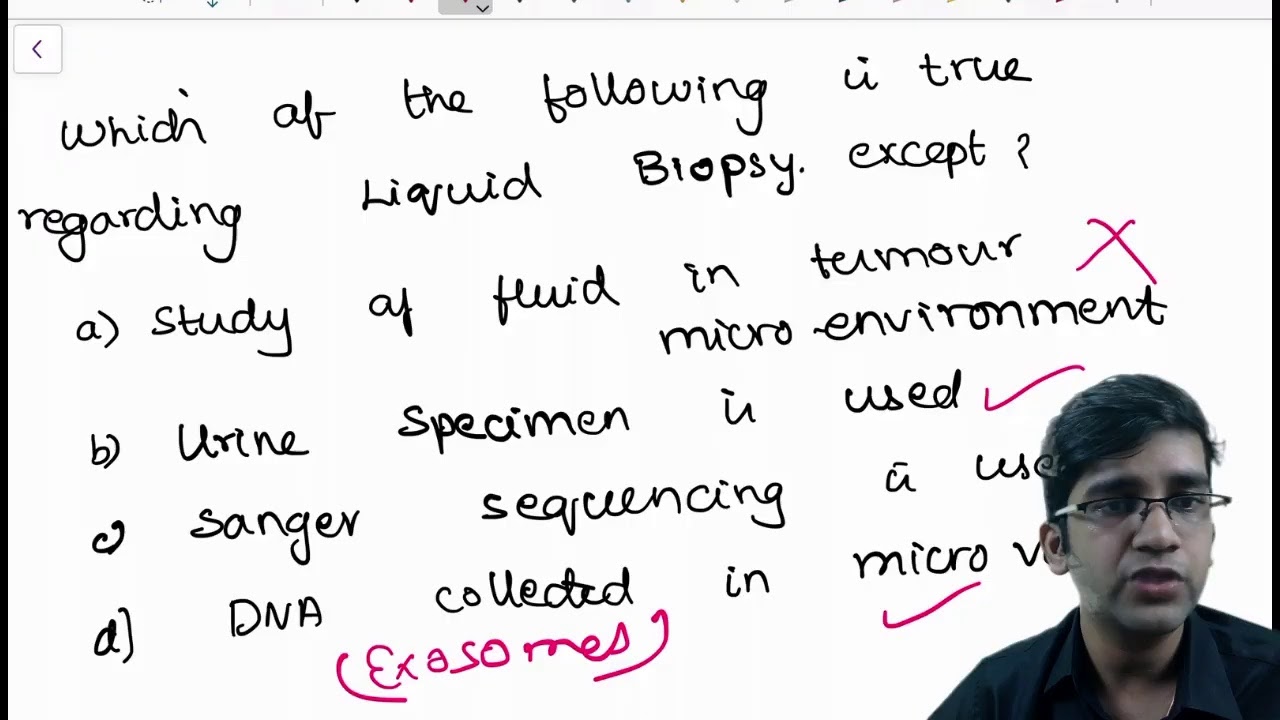 which of the following is true
regarding Liquid Biopsy. except ?
a) study of fluid in tumour
micro-environment
b) Urine specimen is used
c) sanger sequencing is
d) DNA collected in micro
(Exosomes)